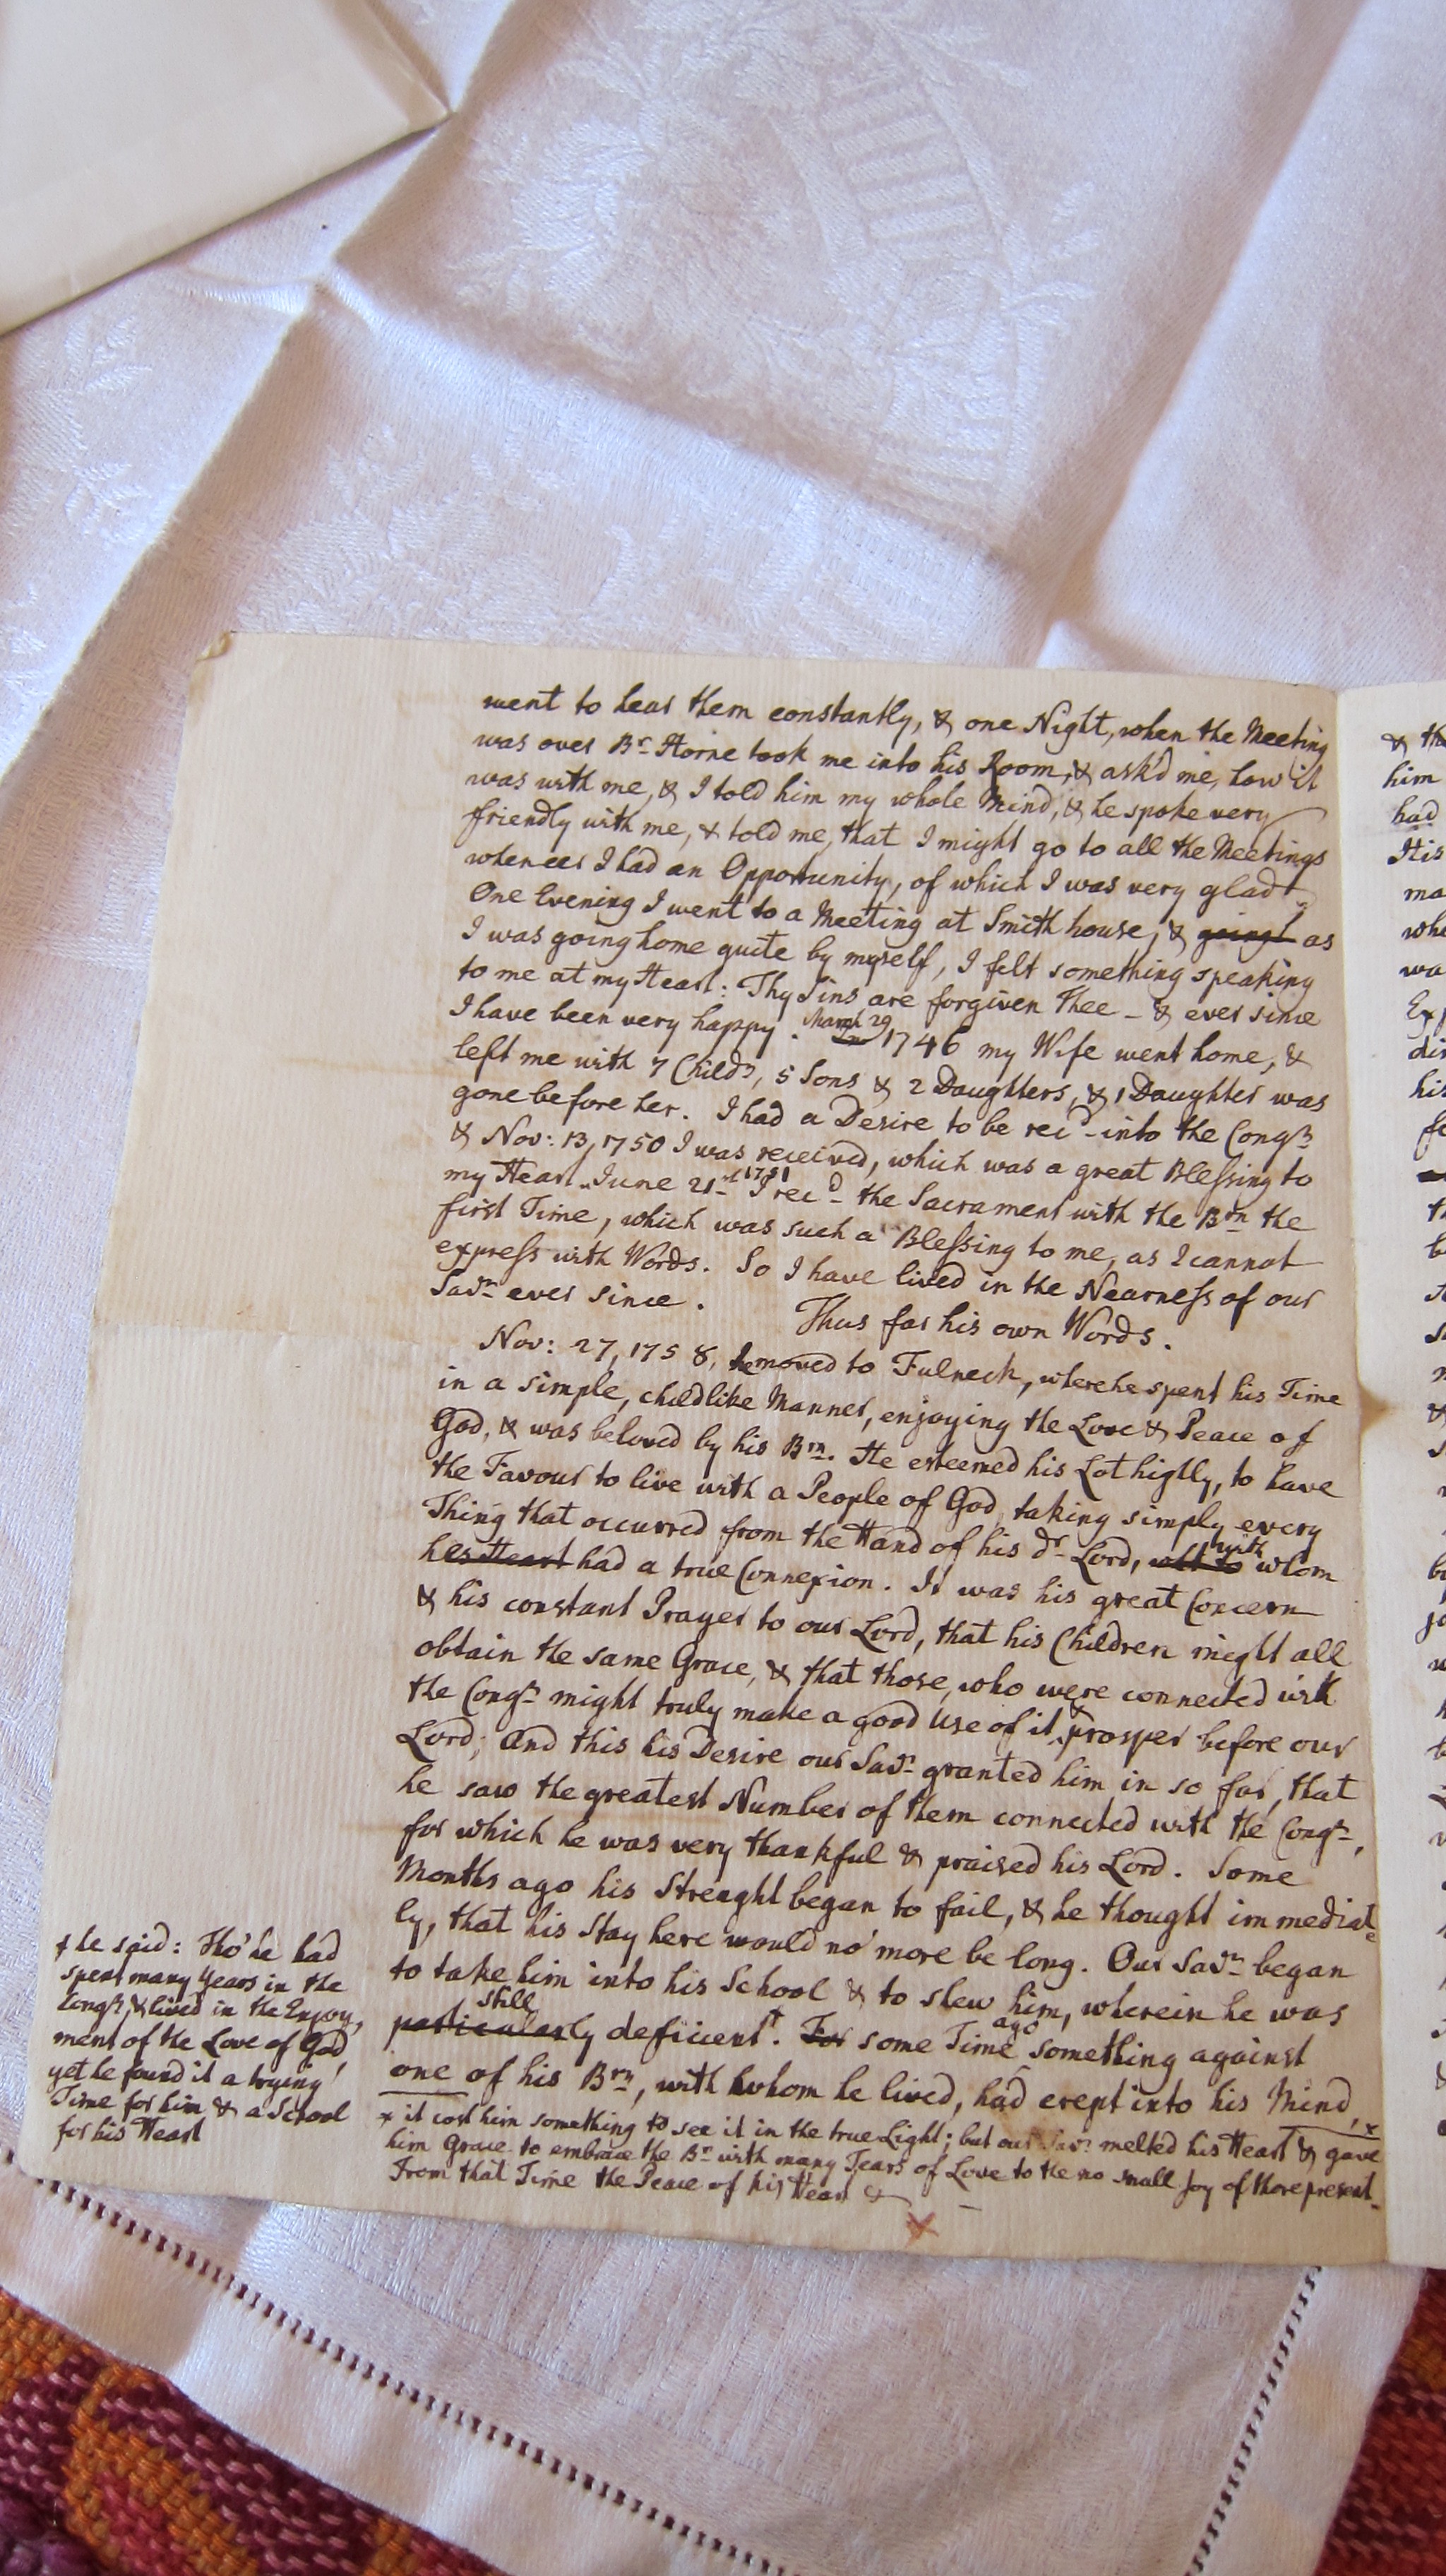 went to hear them constantly, & one Night, when the Meeting
was over Br. Horne took me into his Room, & ask'd me, how it
was with me, & I told him my whole Mind, & he spoke very
friendly with me, & told me, that I might go to all the Meetings
whenever I had an Opportunity, of which I was very glad.
One Evening I went to a Meeting at Smith house, & going as
I was going home quite by myself, I felt something speaking
to me at my Heart: Thy Sins are forgiven Thee - & ever since
I have been very happy. March 29 1746 my Wife went home, &
left me with 7 Childn, 5 Sons & 2 Daughters, & 1 Daughter was
gone before her. I had a Desire to be recd into the Congn
& Nov: 13, 1750 I was received, which was a great Blessing to
my Heart. June 21st 1751 I recd the Sacrament with the Brn the
first Time, which was such a Blessing to me, as I cannot
express with Words. So I have lived in the Nearness of our
Savr ever since. Thus far his own Words.
Nov: 27, 1758, he moved to Fulneck, where he spent his Time
in a simple, childlike Manner, enjoying the Love & Peace of
God, & was beloved by his Brn. He esteemed his Lot highly, to have
the Favour to live with a People of God, taking simply every
Thing that occurred from the Hand of his dr Lord, with whom
hes Heart had a true Connexion. It was his great Concern
& his constant Prayer to our Lord, that his Children might all
obtain the same Grace, & that those, who were connected with
the Congn might truly make a good Use of it & prosper before our
Lord; And this his Desire our Savr granted him in so far, that
he saw the greatest Number of them connected with the Congn,
for which he was very thankful & praised his Lord. Some
Months ago his Strenght began to fail, & he thought immediate
ly, that his Stay here would no more be long. Our Savr began
to take him into his School & to shew him, wherein he was
still
particularly deficient†. For some Time ago something against
one of his Brn, with whom he lived, had crept into his Mind, x
x it cost him something to see it in the true Light; but our Savr melted his Heart & gave
him Grace to embrace the Br with many Tears of Love to the no small Joy of those present.
From that Time the Peace of his Heart &
† he said: Tho' he had
spent many Years in the
Congn, & lived in the Enjoy,
ment of the Love of God,
yet he found it a trying
Time for him & a School
for his Heart
& the
him
had
Itis
ma
whe
wa
Exp
his